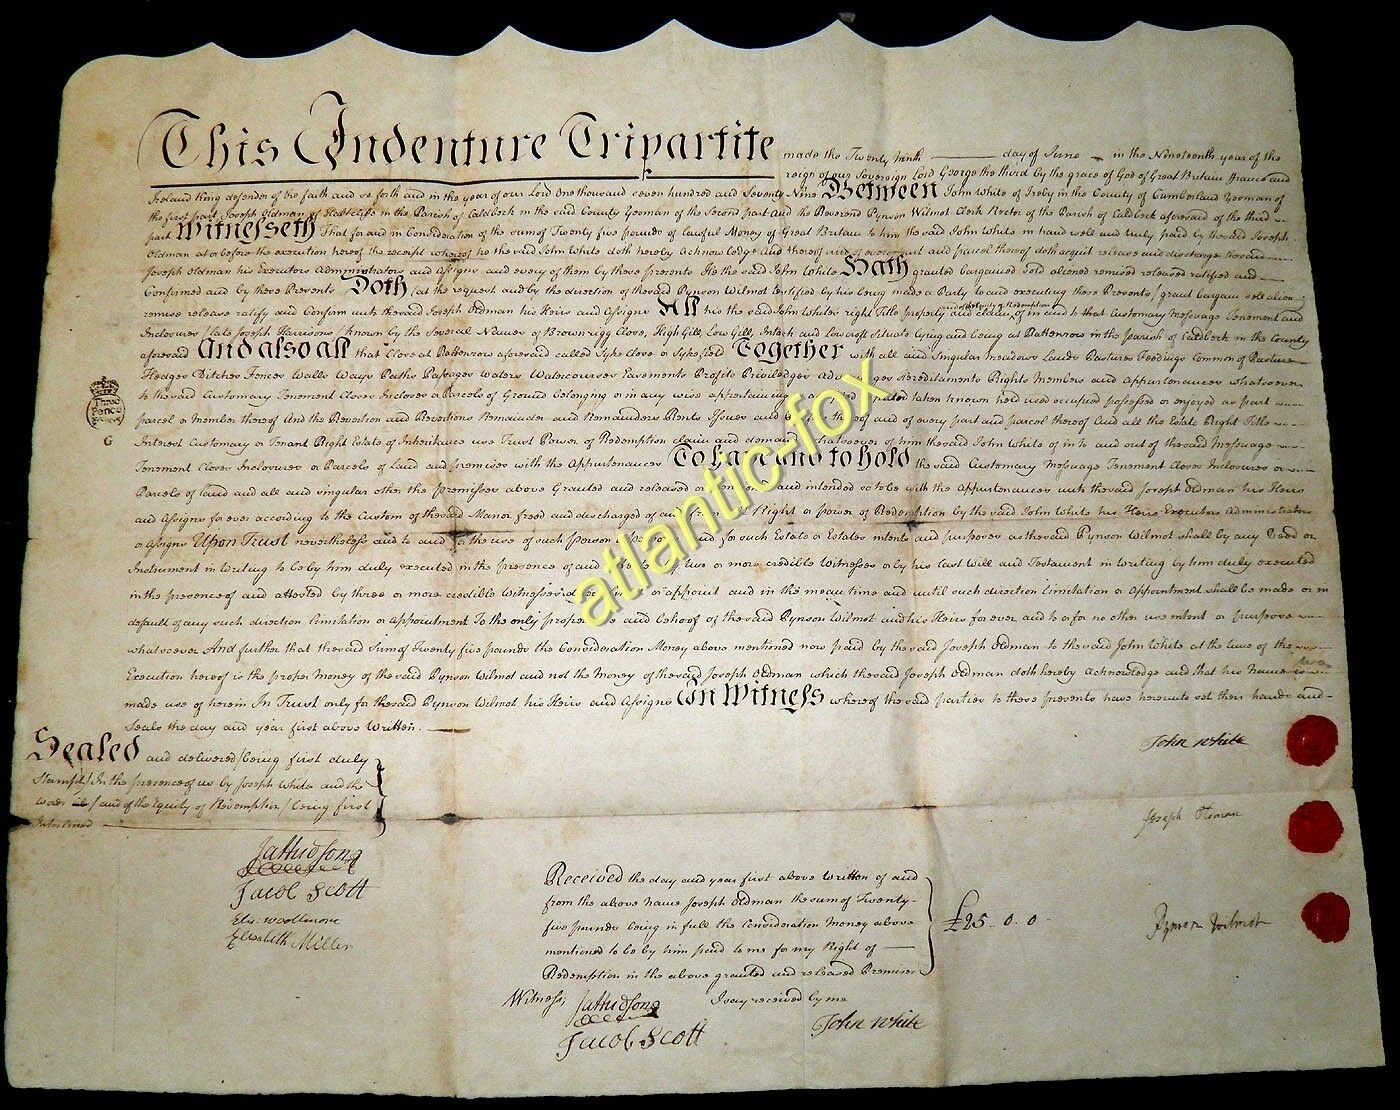 This Indenture Tripartite made the Twenty Ninth day of June in the Nineteenth year of the
reign of our Sovereign Lord George the third by the grace of God of Great Britain France and
Ireland King defender of the faith and so forth and in the year of our Lord One thousand seven hundred and Seventy Nine Between John White of Ireby in the County of Cumberland Yeoman of
the first part Joseph Oldman of in the Parish of Caldbeck in the said County Yeoman of the Second part And the Reverend Pynson Wilmot Clerk Rector of the Parish of Caldbeck aforesaid of the third
part Witnesseth That for and in Consideration of the sum of Twenty five pounds of lawful Money of Great Britain to him the said John White in hand well and truly paid by the said Joseph
Oldman at or before the execution hereof the receipt whereof he the said John White doth hereby Acknowledge And thereof and parcel thereof doth acquit release and discharge the said
Joseph Oldman his Executors Administrators and Assigns and every of them by these presents He the said John White Hath granted bargained sold aliened remised released ratified and
Confirmed and by these Presents Doth /at the request and by the direction of the said Pynson Wilmot testified by his being made a Party to and executing these Presents/ grant bargain sell alien
remise release ratify and Confirm unto the said Joseph Oldman his Heirs and Assigns All his the said John White's right Title property and Equity of Redemption claim of in and to that Customary Messuage Tenement and
Inclosures /late Joseph Harrisons/ known by the Several Names of Brownrigg Close, High Gill, Low Gill, Intack and Lowcroft Situate lying and being at in the parish of Caldbeck in the County
aforesaid And also all that Close at aforesaid called Syke Close or Sykefield Together with all and Singular meadows Landes Pastures Feedings Common of Pasture
Hedges Ditches Fences Walls Ways Paths Passages Waters Watercourses Easements Profits Priviledges Hereditaments Rights Members and Appurtenances whatsoever
to the said Customary Tenement Closes Inclosures or Parcels of Ground belonging or in any wise appertaining taken known held used occupied possessed or enjoyed as part
parcel or Member thereof And the Reversion and Reversions Remainder and Remainders Rents Issues and of and of every part and parcel thereof And all the Estate Right Title
Interest Customary or Tenant Right Estate of Inheritance use Trust Power of Redemption claim and demand whatsoever of him the said John White of in to and out of the said Messuage
Tenement Closes Inclosures or Parcels of Land and premises with the Appurtenances To have and to hold the said Customary Messuage Tenement Closes Inclosures or
Parcels of Land and all and singular other the premisses above Granted and released or and intended so to be with the Appurtenances unto the said Joseph Oldman his Heirs
and Assigns for ever according to the Custom of the said Manor freed and discharged of and from Right or power of Redemption by the said John White his Heirs Executors Administrators
or Assigns Upon Trust nevertheless and to and for the use of such person or and for such Estate or Estates intents and purposes as the said Pynson Wilmot shall by any Deed or
Instrument in Writing to be by him duly executed in the presence of and two or more credible Witnesses or by his Last Will and Testament in writing by him duly executed
in the presence of and attested by three or more credible Witnesses or appoint and in the mean time and until such direction limitation or Appointment shall be made or in
default of any such direction limitation or appointment To the only proper and behoof of the said Pynson Wilmot and his Heirs for ever and to or for no other use intent or purpose
whatsoever And further that the said Sum of Twenty five pounds the Consideration Money above mentioned now paid by the said Joseph Oldman to the said John White at the time of the
Execution hereof is the proper Money of the said Pynson Wilmot and not the Money of the said Joseph Oldman which the said Joseph Oldman doth hereby Acknowledge and that his Name is
made use of herein In Trust only for the said Pynson Wilmot his Heirs and Assigns In Witness whereof the said parties to these presents have hereunto set their hands and
Seals the day and year first above Written.
Three
Pence
G
Sealed and delivered /being first duly
Stampt/ In the presence of us by Joseph White and the
words /and of the Equity of Redemption/ being first
Interlined
John White
Joseph Oldman
Pynson Wilmot
Jacob Scott
Elizabeth Miller
Received the day and year first above Written of and
from the above Name Joseph Oldman the sum of Twenty-
five pounds being in full the Consideration Money above
mentioned to be by him paid to me for my Right of
Redemption in the above granted and released Premises
£25.. 0. 0
Witness
I say received by me
Jacob Scott
John White
atlantic-fox